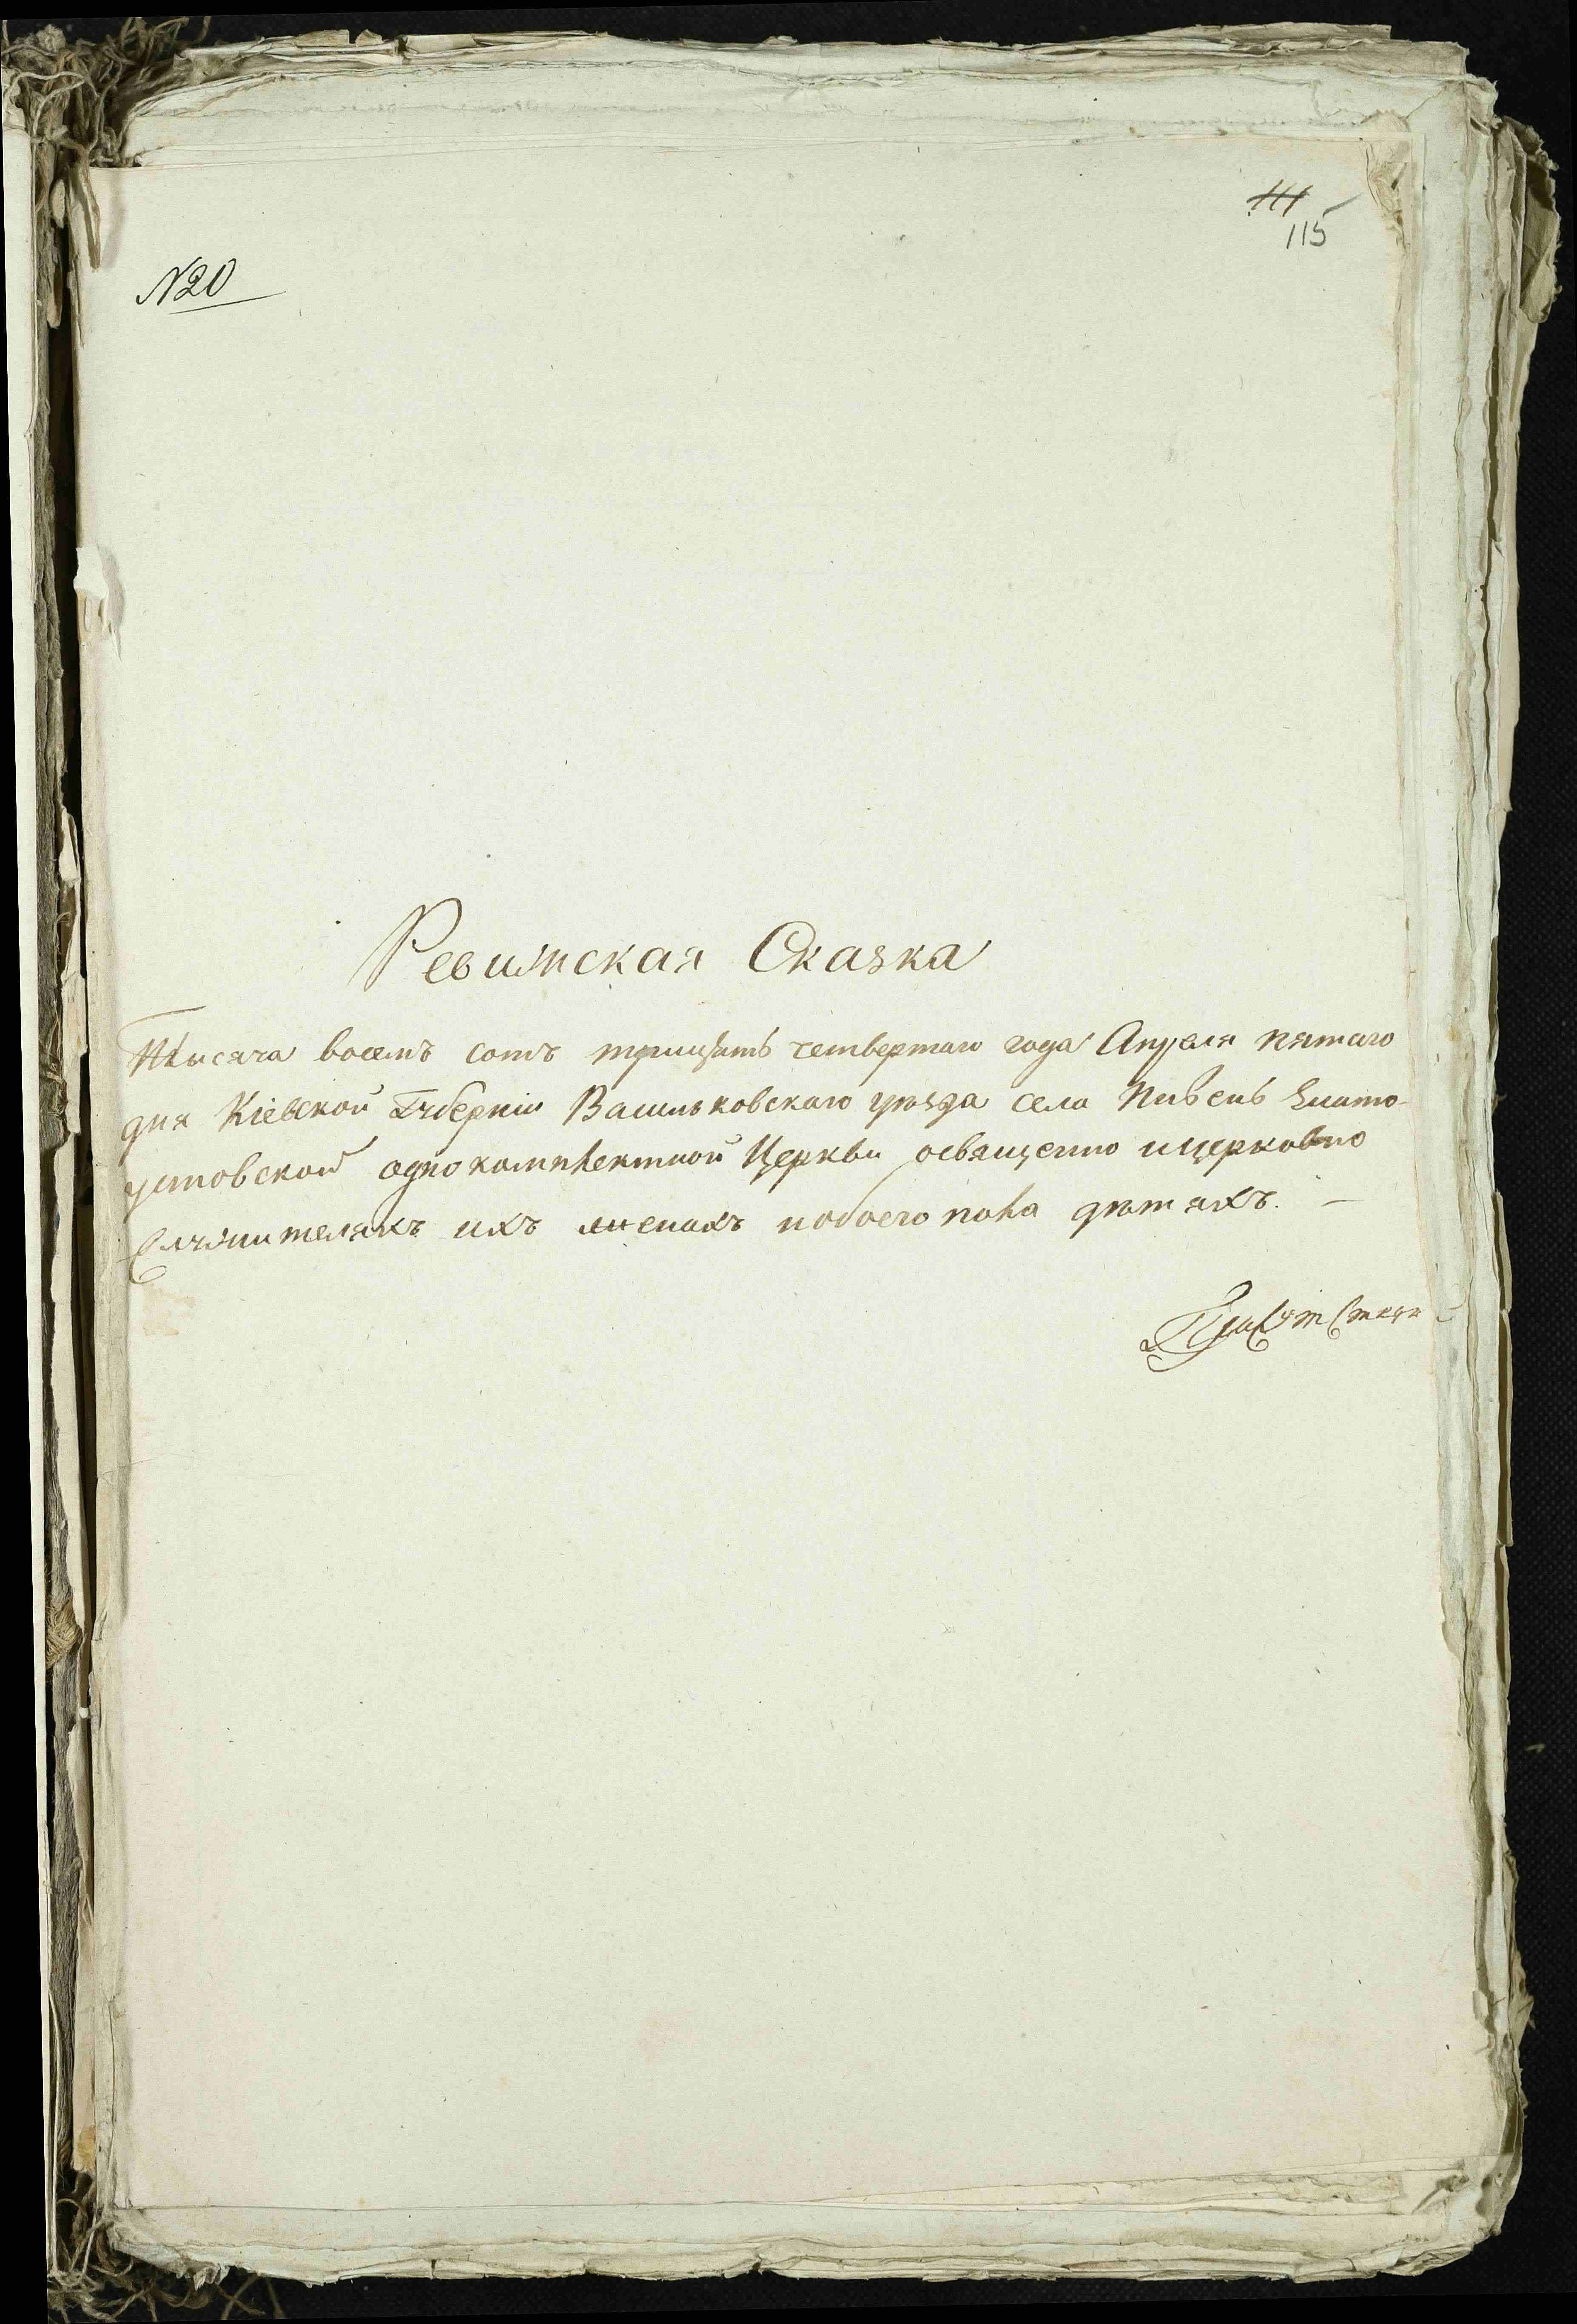 111
115
№ 20
Ревизская Сказка
Тысяча восемъ сотъ тридцать четвертаго года Апреля пятаго
дня Кіевской Губерніи Васильковскаго уѣзда села Пивень Злато-
устовской однокомплектной Церкви освященно и церковно
служителяхъ ихъ женахъ и обоего пола дѣтяхъ. —